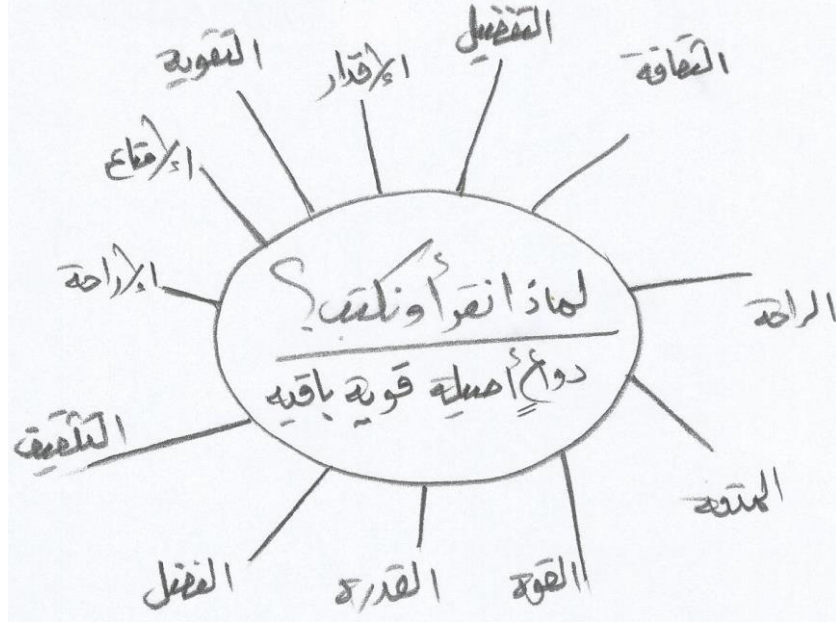 لماذا نقرأ ونكتب؟
دواعٍ أصيلة قوية باقيه
الثقافة
الراحة
المتعة
القوة
القدرة
الفضل
التثقيف
الإراحة
الإمتاع
التقوية
الإقدار
التفضيل